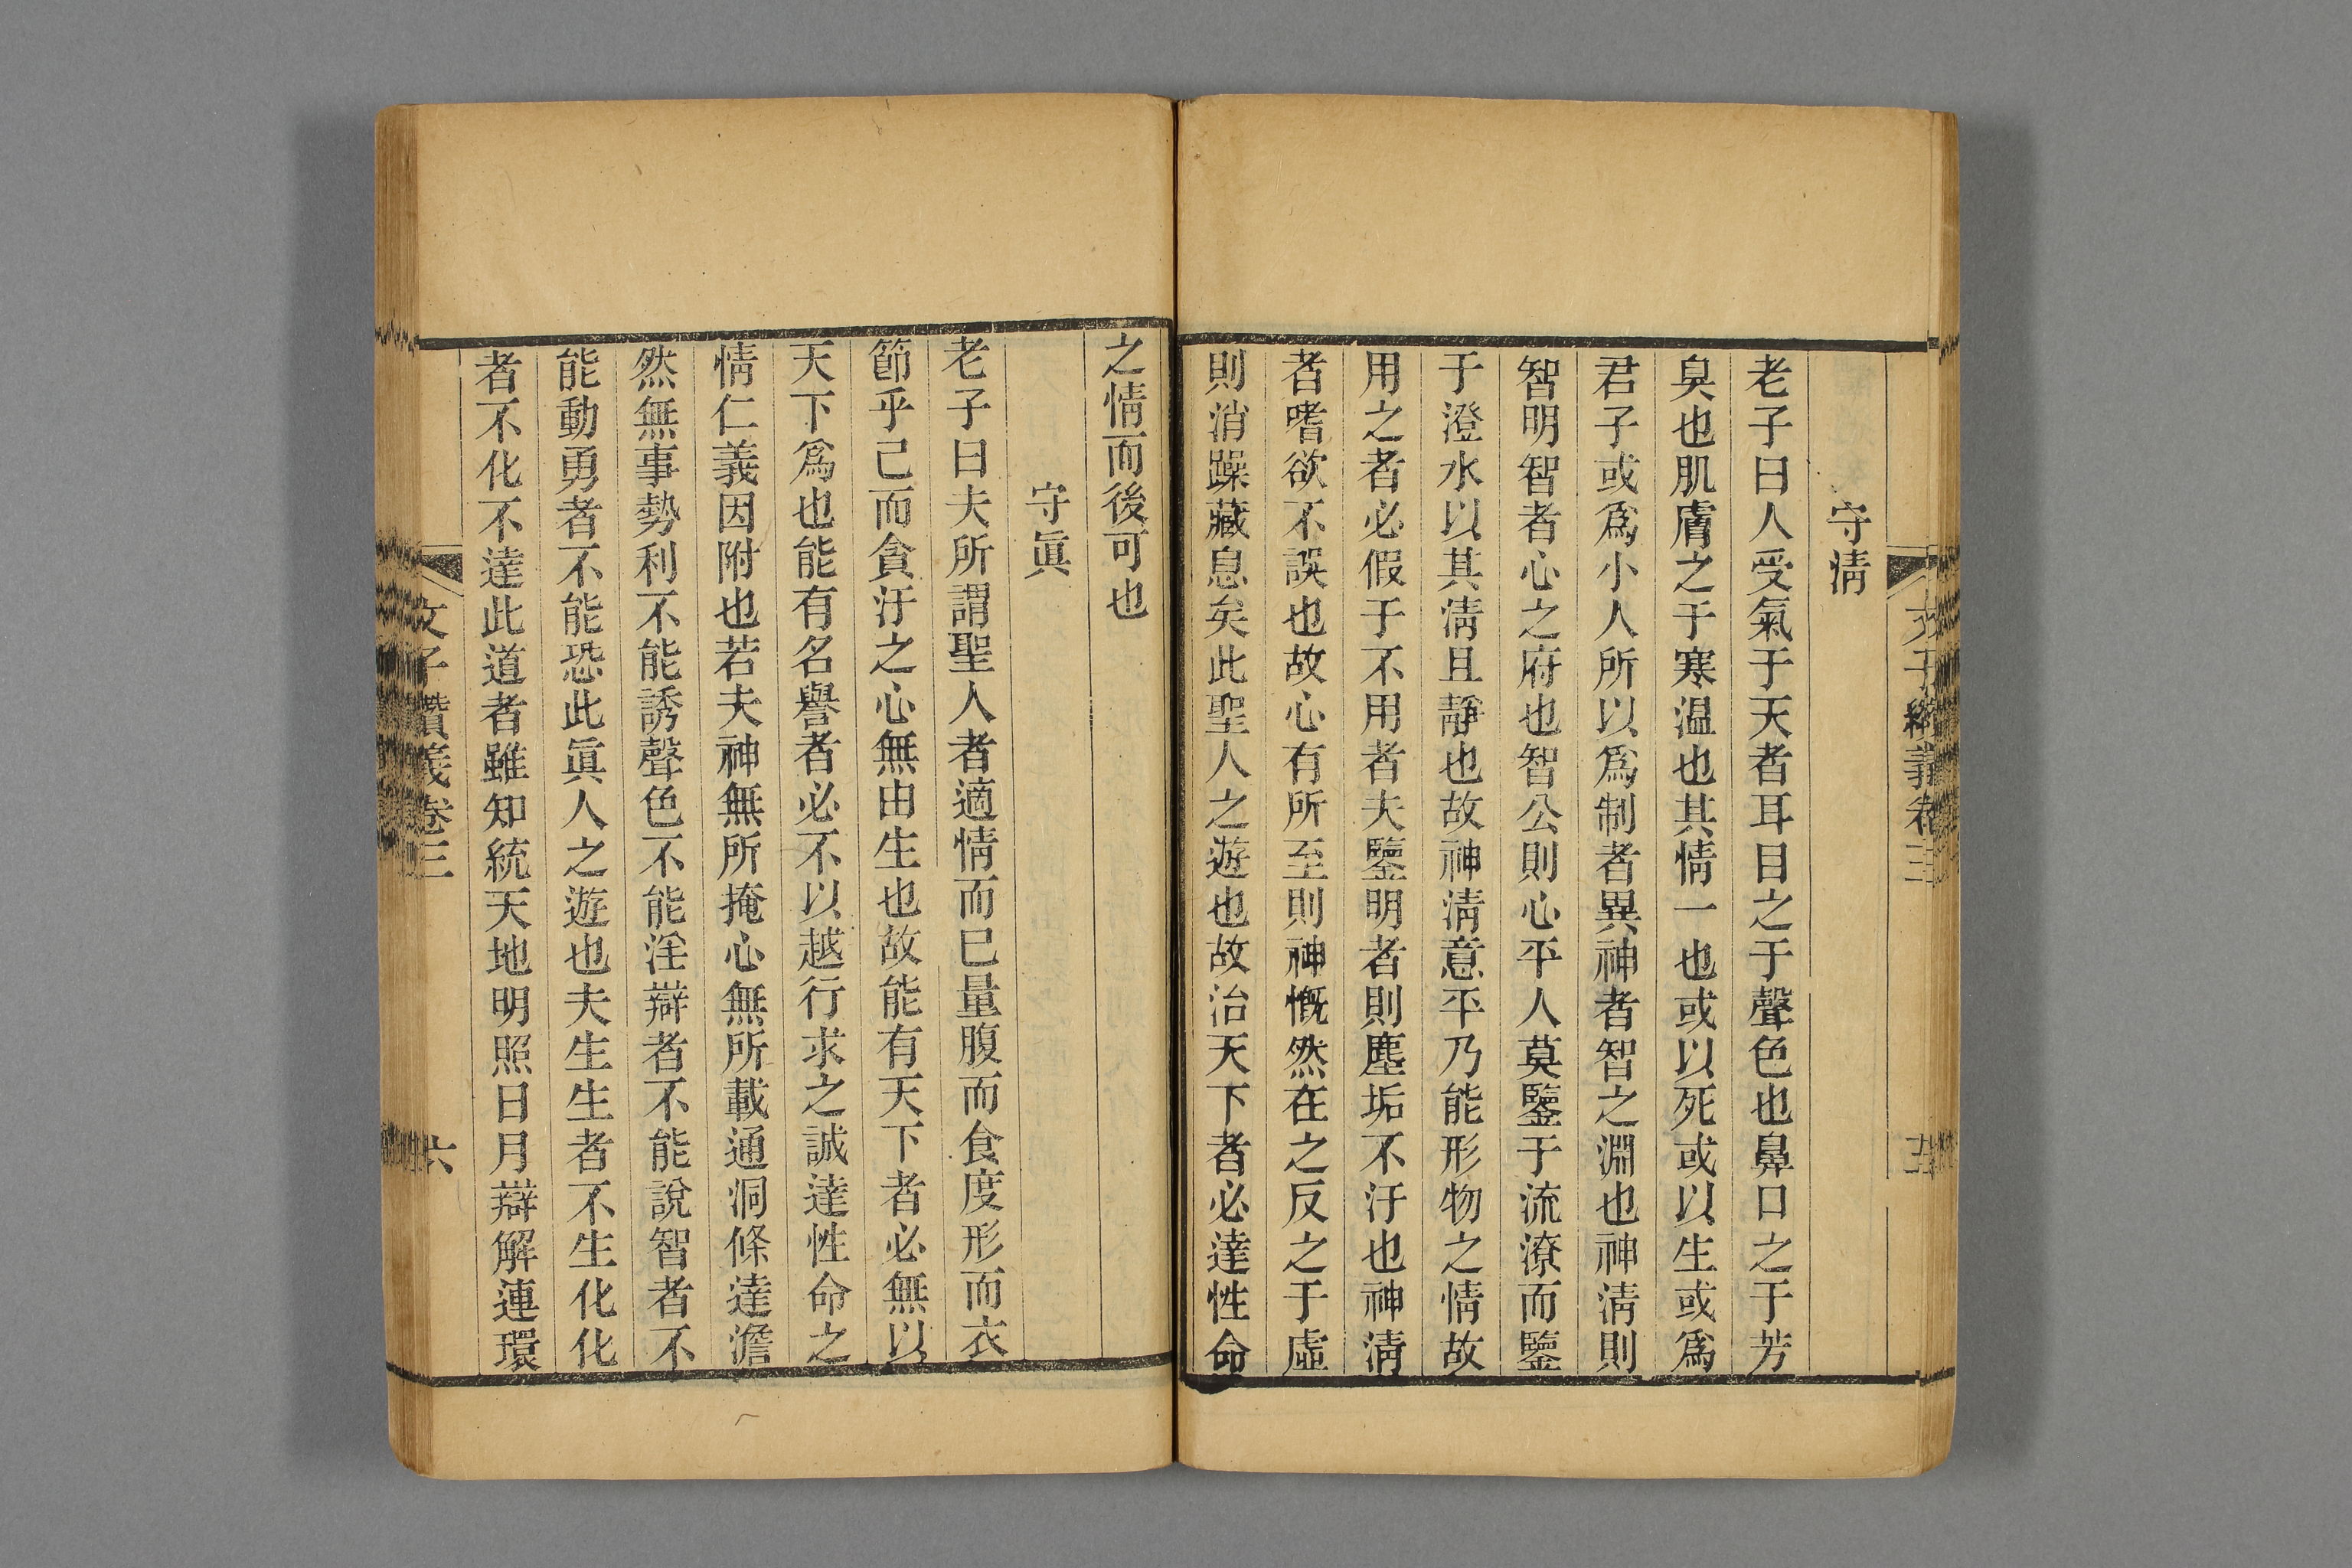 守淸
老子曰人受氣于天者耳目之于聲色也鼻口之于芳
臭也肌膚之于寒温也其情一也或以死或以生或爲
君子或爲小人所以爲制者異神者智之淵也神淸則
智明智者心之府也智公則心平人莫鑒于流潦而鑒
于澄水以其淸且靜也故神淸意平乃能形物之情故
用之者必假于不用者夫鑒明者則塵垢不汙也神淸
者嗜欲不誤也故心有所至則神慨然在之反之于虛
則消躁藏息矣此聖人之遊也故治天下者必達性命
之情而後可也
守眞
老子曰夫所謂聖人者適情而巳量腹而食度形而衣
節乎己而貪汙之心無由生也故能有天下者必無以
天下爲也能有名譽者必不以越行求之誠達性命之
情仁義因附也若夫神無所掩心無所載通洞條達澹
然無事勢利不能誘聲色不能淫辯者不能說智者不
能動勇者不能恐此眞人之遊也夫生生者不生化化
者不化不達此道者雖知統天地明照日月辯解連環
文子纘義卷三
六